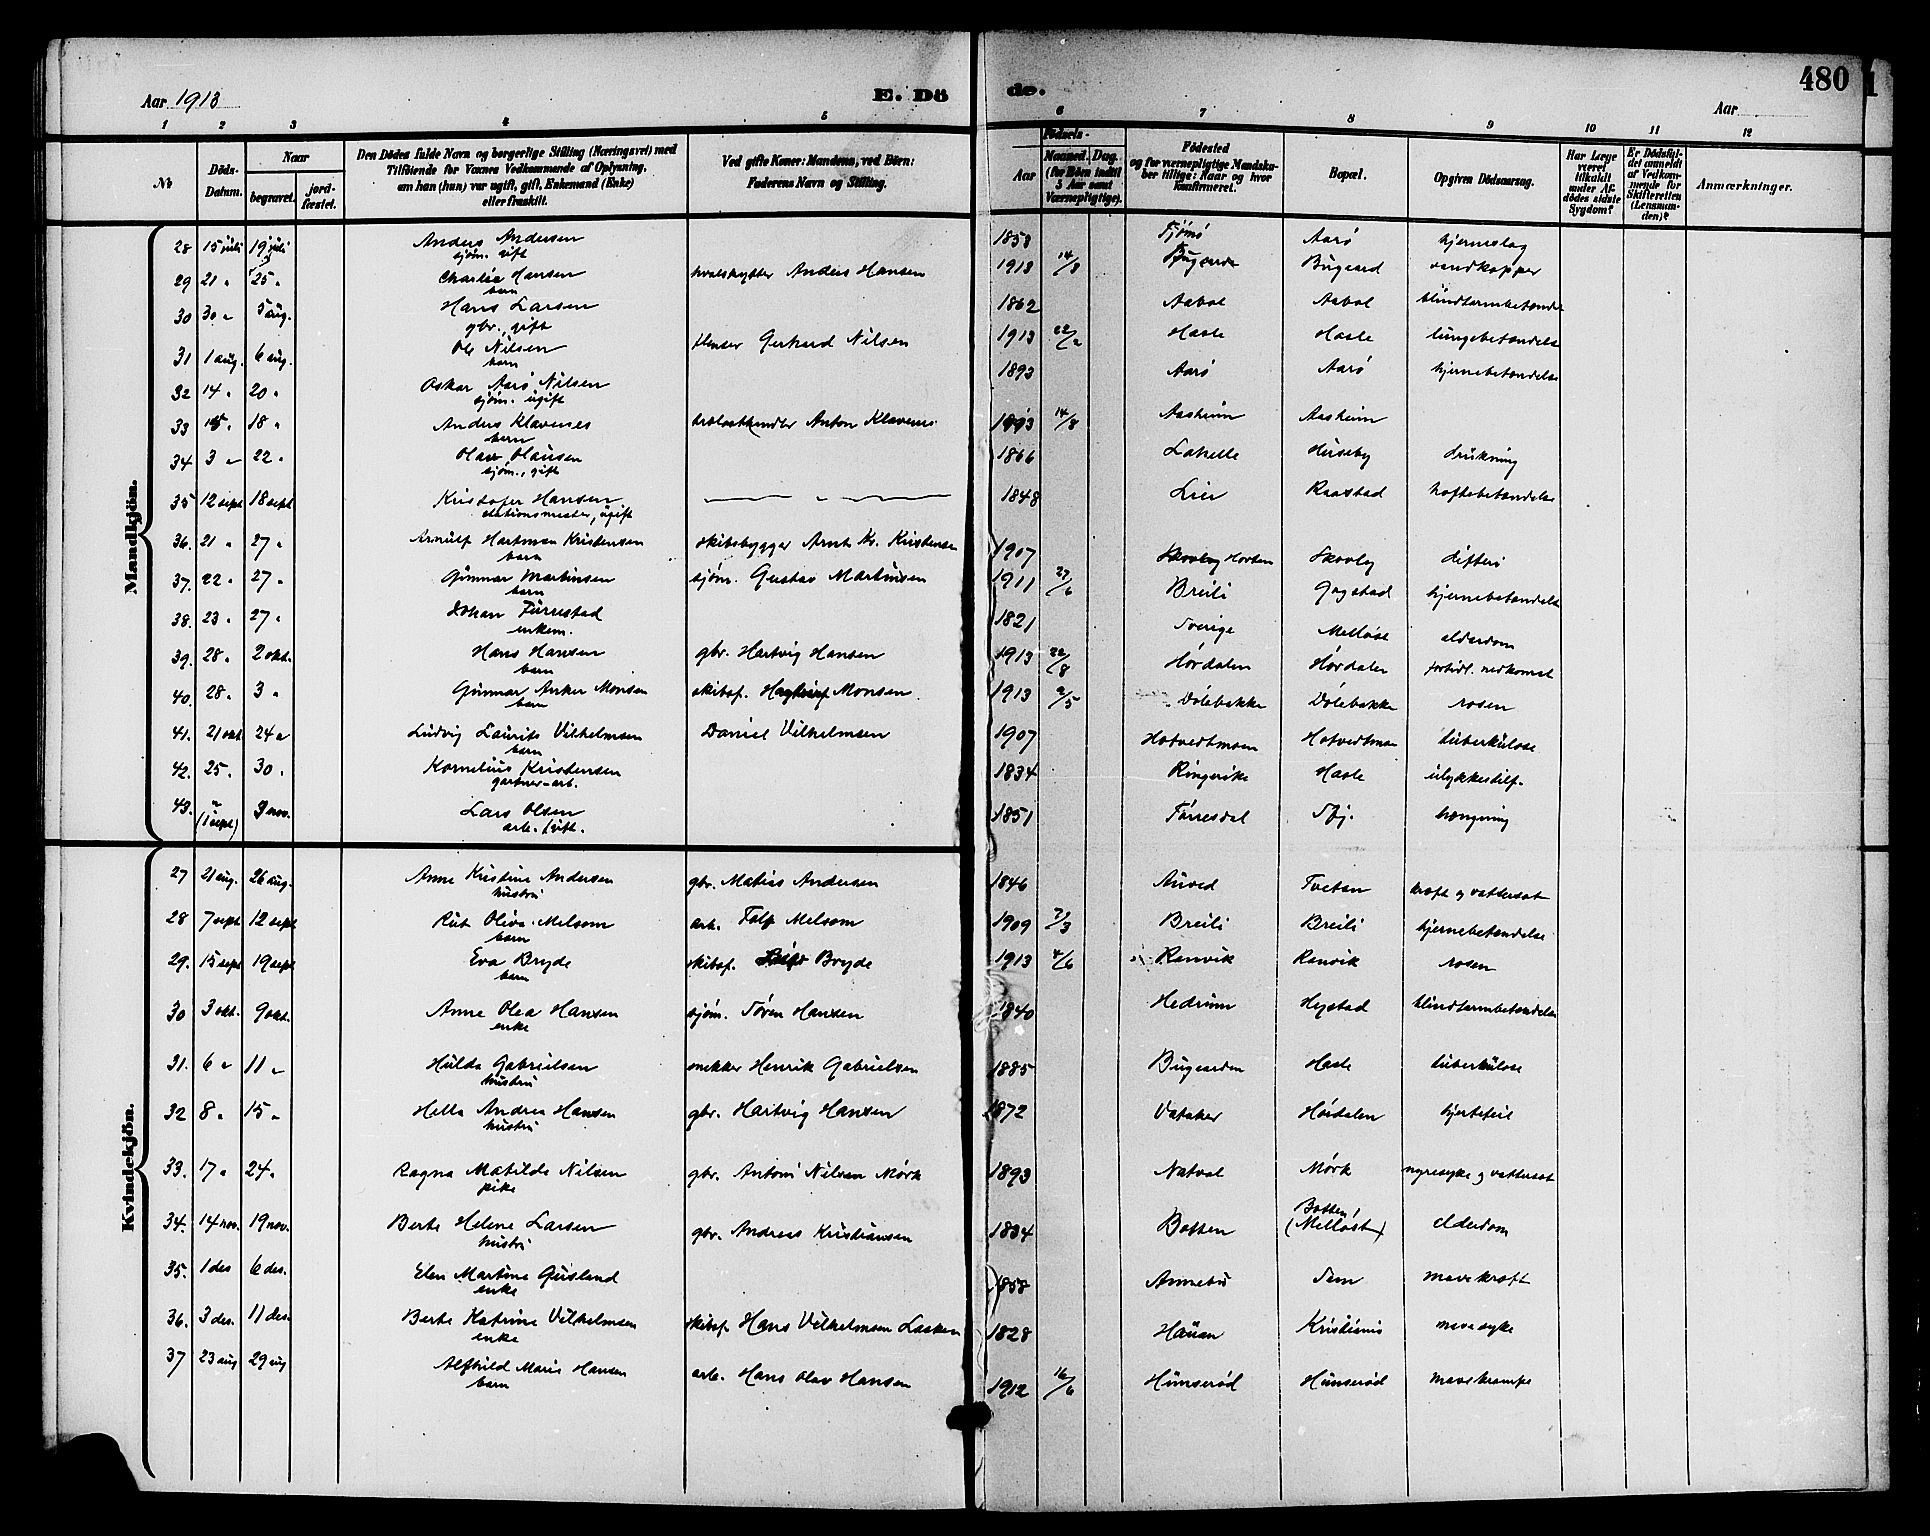 480
Aar 1913
E. Dö
de.
Aar
1 2 3 4 5 6 7 8 9 10 11 12
No
Döds-Datum.
Naar
begravet.
jord-fæstet.
Den Dödes fulde Navn og borgerlige Stilling (Næringsvei) med
Tilföiende for Voxnes Vedkommende af Oplysning,
om han (hun) var ugift, gift, Enkemand (Enke)
eller fraskilt.
Ved gifte Koner: Mandens, ved Börn:
Faderens Navn og Stilling.
Födsels-
Aar
Maaned. Dag.
(for Börn indtil
5 Aar samt
Værnepligtige).
Födested
og for værnepligtige Mandska-
ber tillige: Naar og hvor
konfirmeret.
Bopæl.
Opgiven Dödsaarsag.
Har Læge
været
tilkaldt
under Af-
dödes sidste
Sygdom?
Er Dödsfal-
det anmeldt
af Vedkom-
mende for
Skifteretten
(Lensman-
den)?
Anmærkninger.
Mandkjön.
28 15 juli 19 juli Anders Andersen sjøm. gift 1858 Tjømø Aarø hjerneslag
29 21 " 25 " Charlie Hansen barn hvalskytter Anders Hansen 1913 14/3 Bugaard vandkopper
30 30 " 5 aug. Hans Larsen gbr., gift 1862 Aabol Aabol blindtarmbetændelse
31 1 aug. 6 aug. Ole Nilsen barn flenser Gerhard Nilsen 1913 22/2 Hasle Hasle lungebetændelse
32 14 " 20 " Oskar Aarø Nilsen sjøm. ugift 1893 Aarø Aarø hjernebetændelse
33 15 " 18 " Anders Klavenes barn Anton Klavenes 1913 14/8 Aasheim Aasheim
34 3 " 22 " Olav Olausen sjøm., gift 1866 Lahelle Huseby drukning
35 12 sept 18 sept Kristofer Hansen stationsmester, ugift — " — 1848 Lier Raastad hoftebetændelse
36. 21 " 27 " Arnulf Hartman Kristensen barn skibsbygger Arnt Kr. Kristensen 1907 Skovly Horten Skovly difteri
37. 22 " 27 " Gunnar Martinsen barn sjøm. Gustav Martinsen 1911 27/6 Breili Gogstad hjernebetændelse
38. 23 " 27 " Johan Furrestad enkem. 1821 Sverige Melløse alderdom
39. 28 " 2 okt. Hans Hansen barn gbr. Hartvig Hansen 1913 22/8 Hørdalen Hørdalen fortidl. nedkomst
40. 28 " 3 " Gunnar Anker Monsen barn skibsf. Monsen 1913 2/5 Dølebakke Dølebakke rosen
41. 21 okt 24 " Ludvig Laurits Vilhelmsen barn Daniel Vilhelmsen 1907 Hotvedtmoen Hotvedtmoen tuberkulose
42. 25 " 30 " Kornelius Kristensen gartner-arb. 1834 Ringerike Hasle ulykkestilf.
43. " (1 sept) 3 nov. Lars Olsen arb. gift. 1851 Tørresdal hængning
Kvindekjön.
27 21 aug. 26 aug. Anne Kristine Andersen hustru gbr. Matias Andersen 1846 Auved Tvetan kræft og vattersot
28 7 sept 12 sept Rut Oliva Melsom barn arb. Melsom 1909 7/3 Breili Breili hjernebetændelse
29. 15 sept 19 sept Eva Bryde barn skibsf. Bryde 1913 4/6 Ranvik Ranvik rosen
30 3 okt. 9 okt. Anne Olea Hansen enke sjøm. Søren Hansen 1840 Hedrum Hystad blindtarmbetændelse
31. 6 " 11 " Hulda Gabrielsen hustru snekker Henrik Gabrielsen 1885 Bugaarden Hasle tuberkulose
32 8 " 15 " Hella Andrea Hansen hustru gbr. Hartvig Hansen 1872 Vataker Hørdalen hjertefeil
33. 17 " 24 " Ragna Matilde Nilsen pike gbr. Antoni Nilsen Mørk 1893 Natvol Mørk nyresyke og vattersot
34. 14 nov. 19 nov. Berte Helene Larsen hustru gbr. Andreas Kristiansen 1834 Botten Botten, (Melløst) elderdom
35. 1 des 6 des. Elen Martine Gusland enke 1858 Annebu Sem mavekræft
36. 3 des. 11 des. Berte Katrine Vilhelmsen enke skibsf. Hans Vilhelmsen Lasken 1828 Hauan Kristiania mavesyke
37 23 aug 29 aug Alfhild Marie Hansen barn arb. Hans Olav Hansen 1912 16/6 Hunserød Hunserød mavekrampe